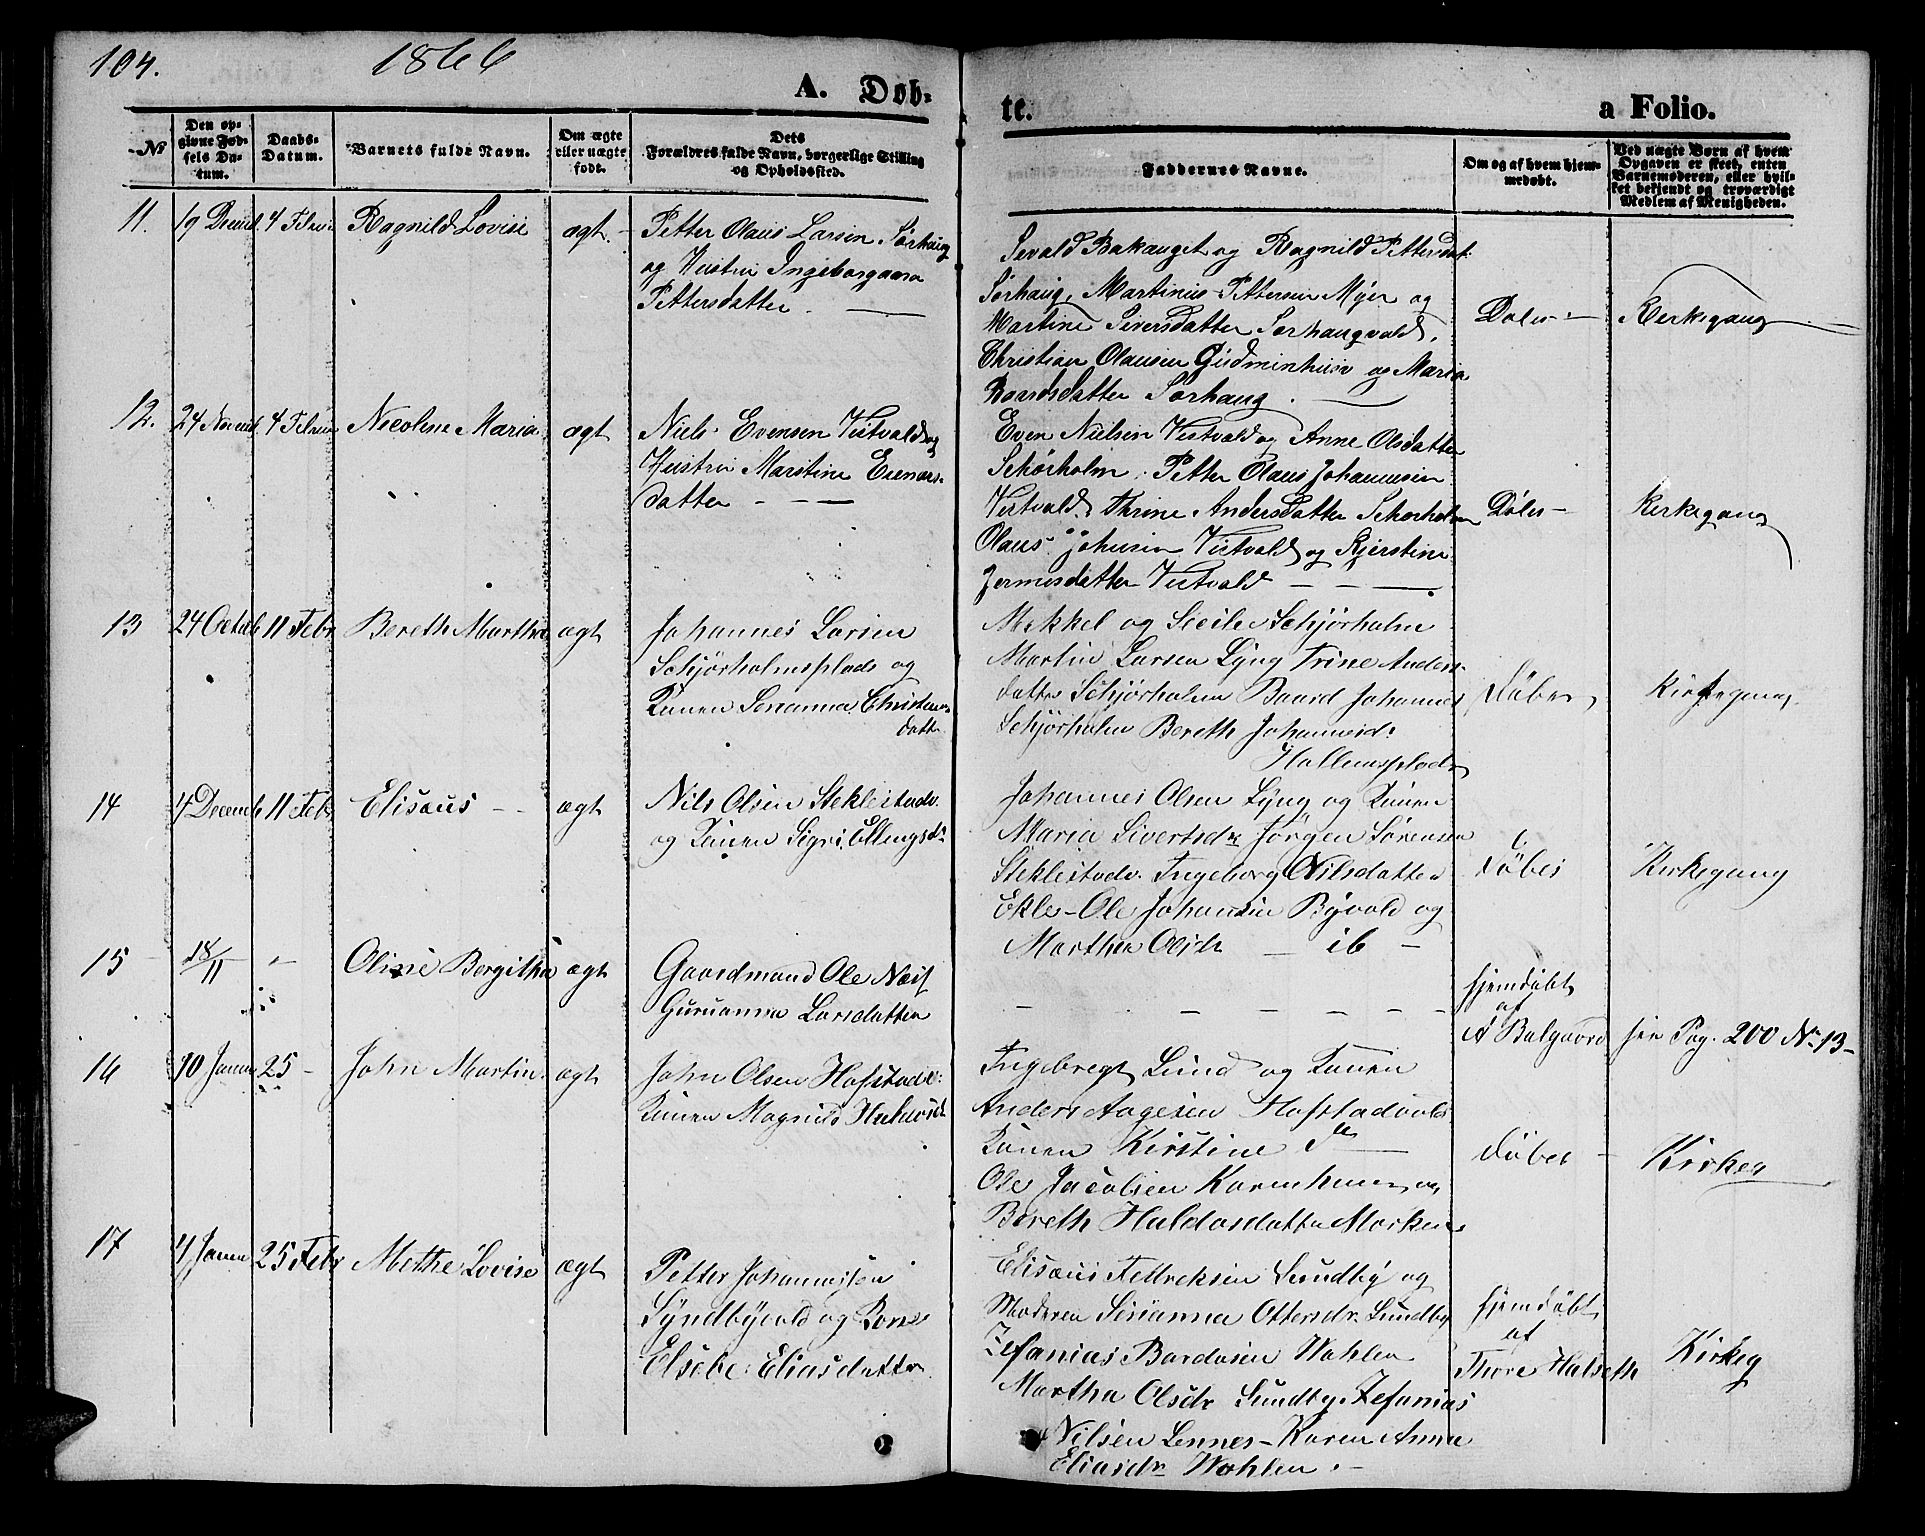 104.
1866
A. Døb-
te.
a Folio.
No
Den op-
givne Fød-
sels Da-
tum.
Daabs-
Datum.
Barnets fulde Navn.
Om ægte
eller uægte
født.
Dets
Forældres fulde Navn, borgerlige Stilling
og Opholdssted.
Faddernes Navne.
Om og af hvem hjem-
medøbt.
Ved uægte Børn af hvem
Opgaven er skeet, enten
Barnemoderen, eller hvil-
ket bekjendt og troværdigt
Medlem af Menigheden.
11.
19 Decemb.
4 Febru.
Ragnild Lovise
ægt.
Petter Olaus Larsen Sørhaug
og Hustru Ingeborganna
Pettersdatter.
Sevald Bakauget og Ragnild Pettersdat.
Sørhaug, Martinus Pettersen Myr og
Martine Siversdatter Sørhaugvald,
Christian Olausen Gudminhusv og Maria
Baardsdatter Sørhaug.
Døbes
Kerkegang
12.
24 Novemb.
4 Februar
Nicoline Maria
ægt
Niels Evensen Vestvald og
Hustru Marstine Einars-
datter
Even Nielsen Vestvald og Anne Olsdatter
Schørholm. Petter Olaus Johannesen
Vestvald. Thrine Andersdatter Schørholm
Olaus Johnsen Vestvald og Kjerstine
Jermusdatter Vestvald
Døles
Kerkegang
13
24 Octob
11 Febr
Bereth Martha
ægt
Johannes Larsen
Schjørholmsplads og
Konen Serianna Christens-
datte
Mekkel og Sicile Schjørholm
Martin Larsen Lyng Trine Anders-
datter Schjørholm Baard Johannes
Schjørholm Bereth Johannesd:
Hallemsplads
Døbes
Kirkegang.
14
4 Decemb
11 Febr
Elisæus
ægt
Nils Olsen Steklestadv.
og Konen Sigri Ellingsdr
Johannes Olsen Lyng og Konen
Maria Sivertsdr Jørgen Sørensen
Steklestadv. Ingeborg Nilsdatter
Ekle - Ole Johansen Byvald og
Marthea Olsdr - ib -
Døbes
Kirkegang
15
18/11
Oline Bergitha
ægt
Gaardmand Ole Næss
Guruanna Larsdatter
hjemdøbt
af
A Balgaard
see Pag. 200 No 13
16
10 Januar
25
John Martin
ægt
John Olsen Hofstadv:
Konen Magnild Halvorsdr
Ingebregt Lund og Konen
Anders Aagesen Hofstadvald
Konen Kirstine do
Ole Jacobsen Karenhaug og
Bereth Haldosdatter Marken
Døbes
Kirkeg
17
4 Janua
25 Febr
Methe Lovise
ægt
Petter Johannessen
Syndbyvald og Kone
Elsebe Eliasdatter
Elisæus Fredreksen Sundby og
Moderen Serianna Ottersdr Sundby
Zefanias Bardosen Wohlen
Martha Olsdr Sundby Zefanias
Nilsen Lennes - Karen Anna
Eliasdr Wohlen.
hjemdøbt
af
Thore Halseth
Kirkeg